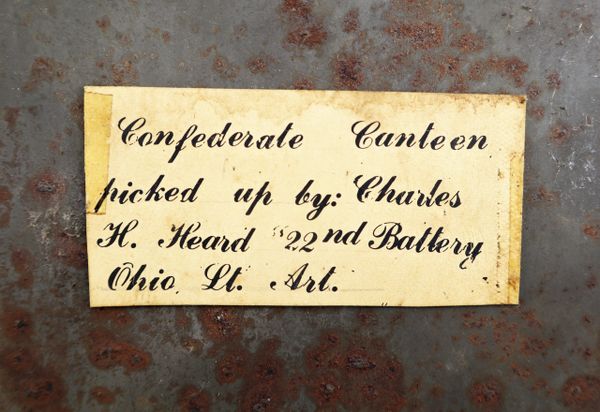 Confederate Canteen
picked up by: Charles
H. Heard 22nd Battery
Ohio Lt. Art.